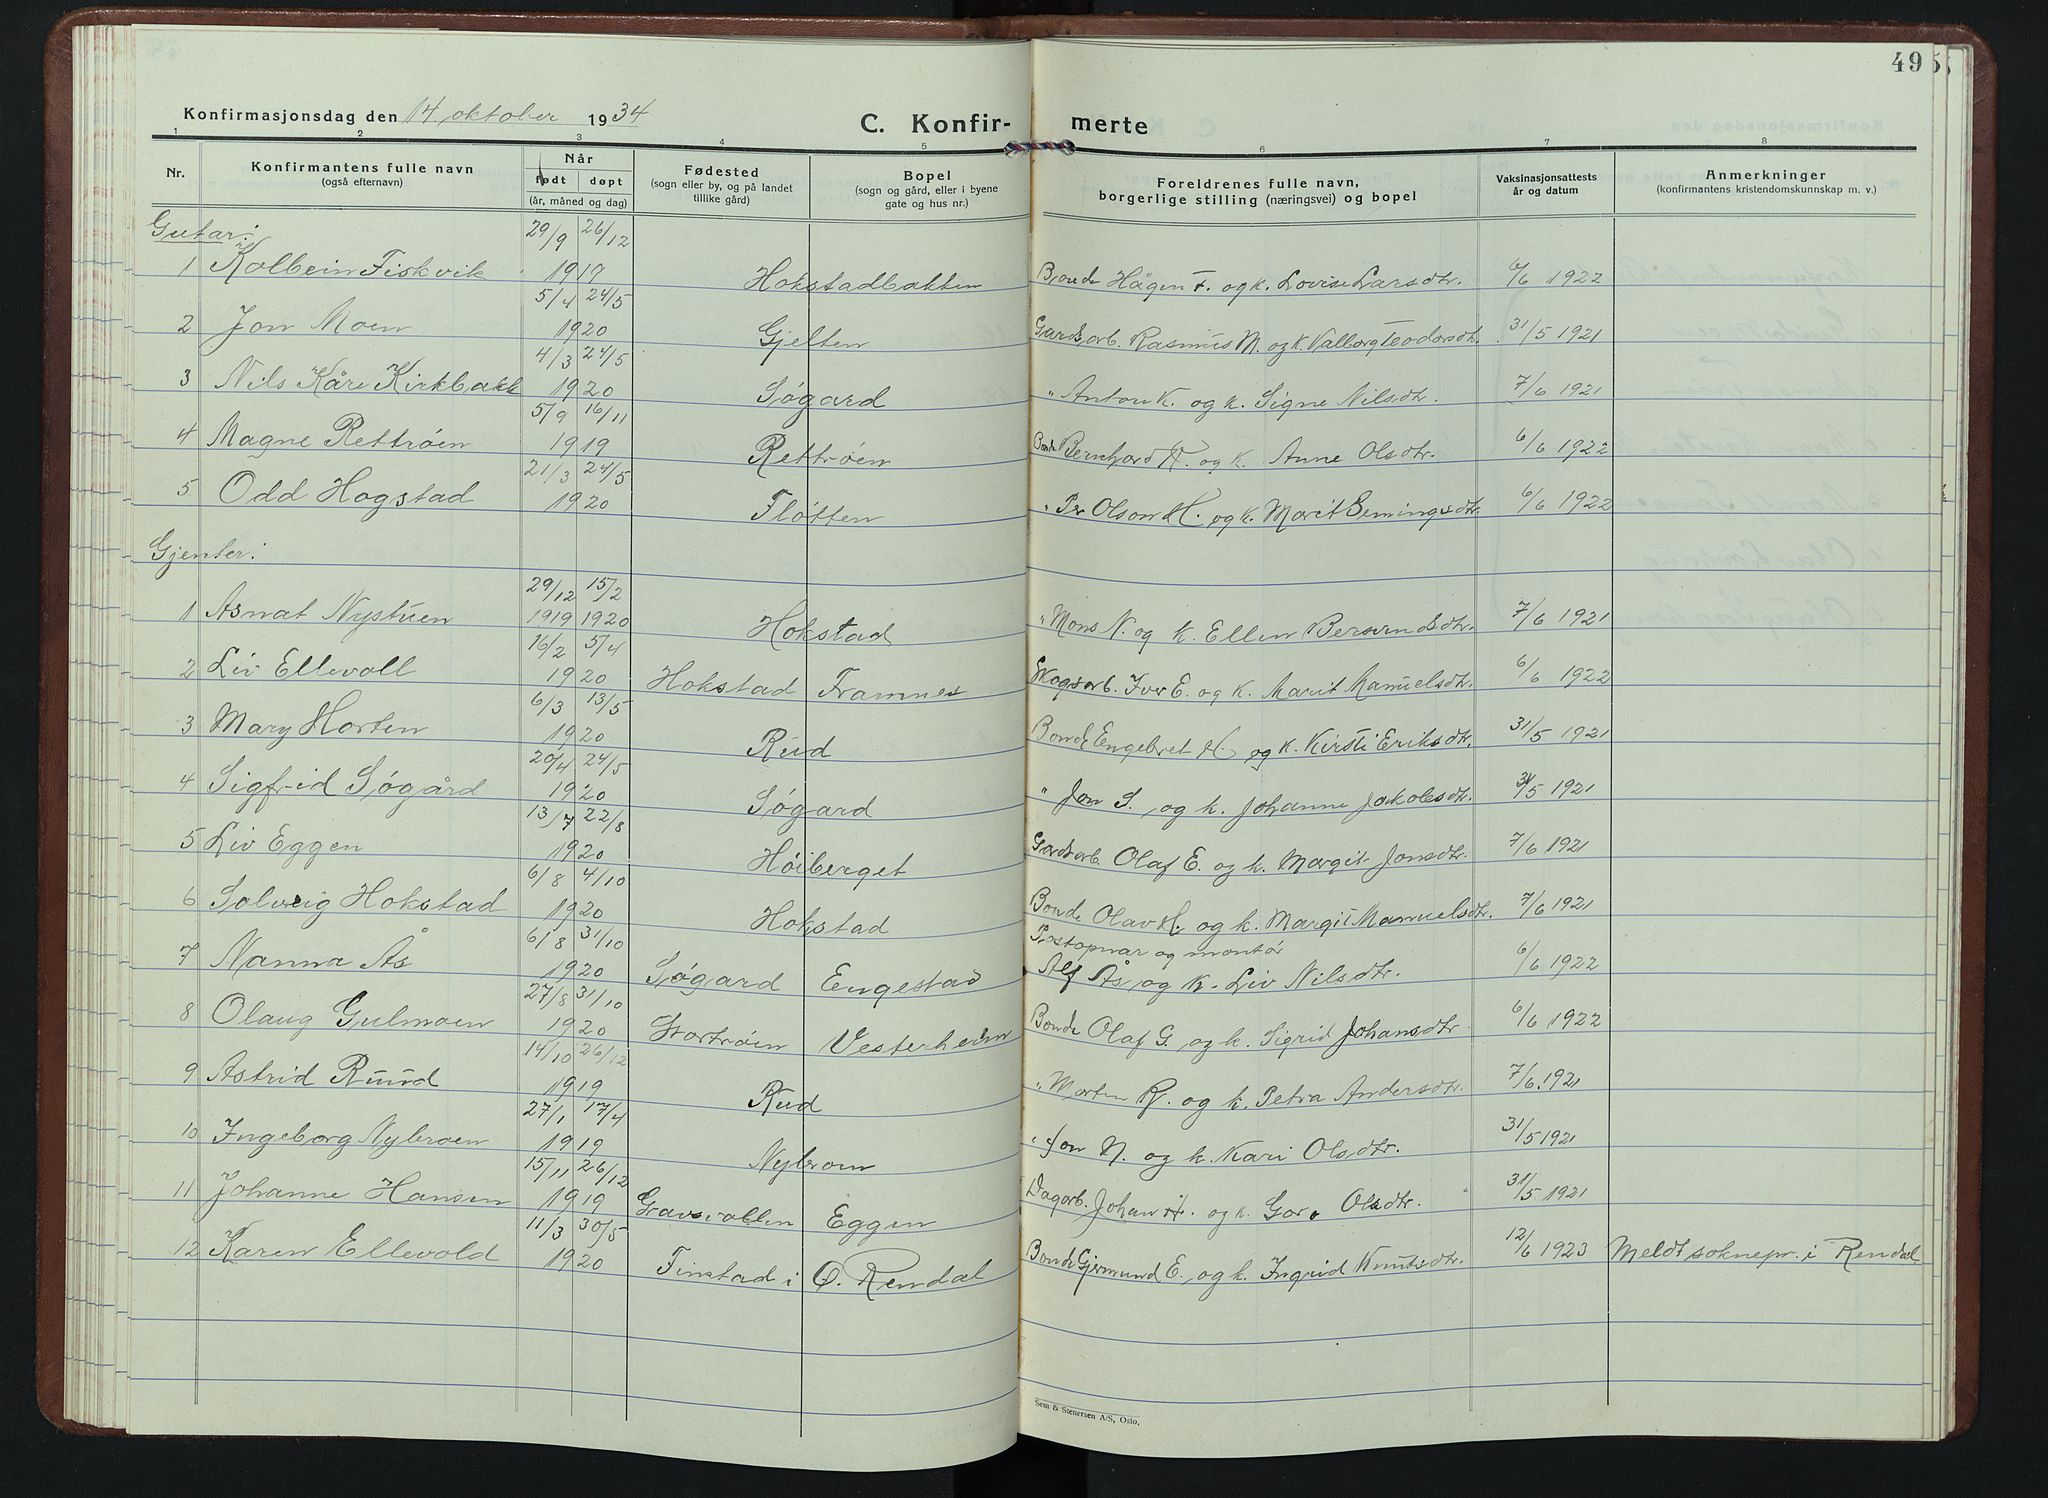 49
Konfirmasjonsdag den 14. oktober 1934
C. Konfir- merte
1 2 3 4 5 6 7 8
Nr.
Konfirmantens fulle navn
(også efternavn)
Når
født døpt
(år, måned og dag)
Fødested
(sogn eller by, og på landet
tillike gård)
Bopel
(sogn og gård, eller i byene
gate og hus nr.)
Foreldrenes fulle navn,
borgerlige stilling (næringsvei) og bopel
Vaksinasjonsattests
år og datum
Anmerkninger
(konfirmantens kristendomskunnskap m. v.)
Gutar:
29/9 26/12
1 Kolbein Fiskvik 1917 Hokstadbakken Bonde Hågen F. og k. Lovise Larsdtr. 6/6 1922
5/4 24/5
2 Jon Moen 1920 Gjelten Gardsarb. Rasmus M. og k. Valborg Teodorsdtr. 31/5 1921
4/3 24/5
3 Nils Kåre Kirkbakk 1920 Søgard " Anton K. og k. Signe Nilsdtr. 7/6 1921
5/9 16/11
4 Magne Rettrøen 1919 Rettrøen Bonde Bernhard R. og k. Anne Olsdtr. 6/6 1922
21/3 24/5
5 Odd Hogstad 1920 Fløtten " Per Olson H. og k. Marit Semingsdtr. 6/6 1922
Gjenter:
29/12 15/2
1 Asnat Nystuen 1919 1920 Hokstad " Mons N. og k. Ellen Bersvendsdtr. 7/6 1921
16/2 5/4
2 Liv Ellevoll 1920 Hokstad Framnes Skogsarb. Iver E. og k. Marit Manuelsdtr. 6/6 1922
6/3 13/5
3 Mary Horten 1920 Rud Bonde Engebret H. og k. Kirsti Eriksdtr. 31/5 1921
20/4 24/5
4 Sigfrid Søgård 1920 Søgard " Jon S. og k. Johanne Jakobsdtr. 31/5 1921
13/7 22/8
5 Liv Eggen 1920 Høiberget Gardsarb. Olaf E. og k. Margit Jonsdtr. 7/6 1921
6/8 4/10
6 Solveig Hokstad 1920 Hokstad Bonde Olav H. og k. Margit Manuelsdtr. 7/6 1921
6/8 31/10 Postopnar og montør
7 Nanna Ås 1920 Søgard Engestad Alf Ås og k. Liv Nilsdtr. 6/6 1922
27/8 31/10
8 Olaug Gulmoen 1920 Stortrøen Vesterheim Bonde Olaf G. og k. Sigrid Johansdtr. 6/6 1922
14/10 26/12
9 Astrid Ruud 1919 Rud " Morten R. og k. Petra Andersdtr. 7/6 1921
27/1 17/4
10 Ingeborg Nybroen 1919 Nybroen " Jon N. og k. Kari Olsdtr. 31/5 1921
15/11 26/12
11 Johanne Hansen 1919 Gravsvollen Eggen Dagarb. Johan H. og k. Goro Olsdtr. 31/5 1921
11/3 30/5
12 Karen Ellevold 1920 Finstad i Ø. Rendal Bonde Gjermund E. og k. Ingrid Knutsdtr. 12/6 1923 Meldt soknepr. i Rendal
Sem & Stenersen A/S, Oslo.